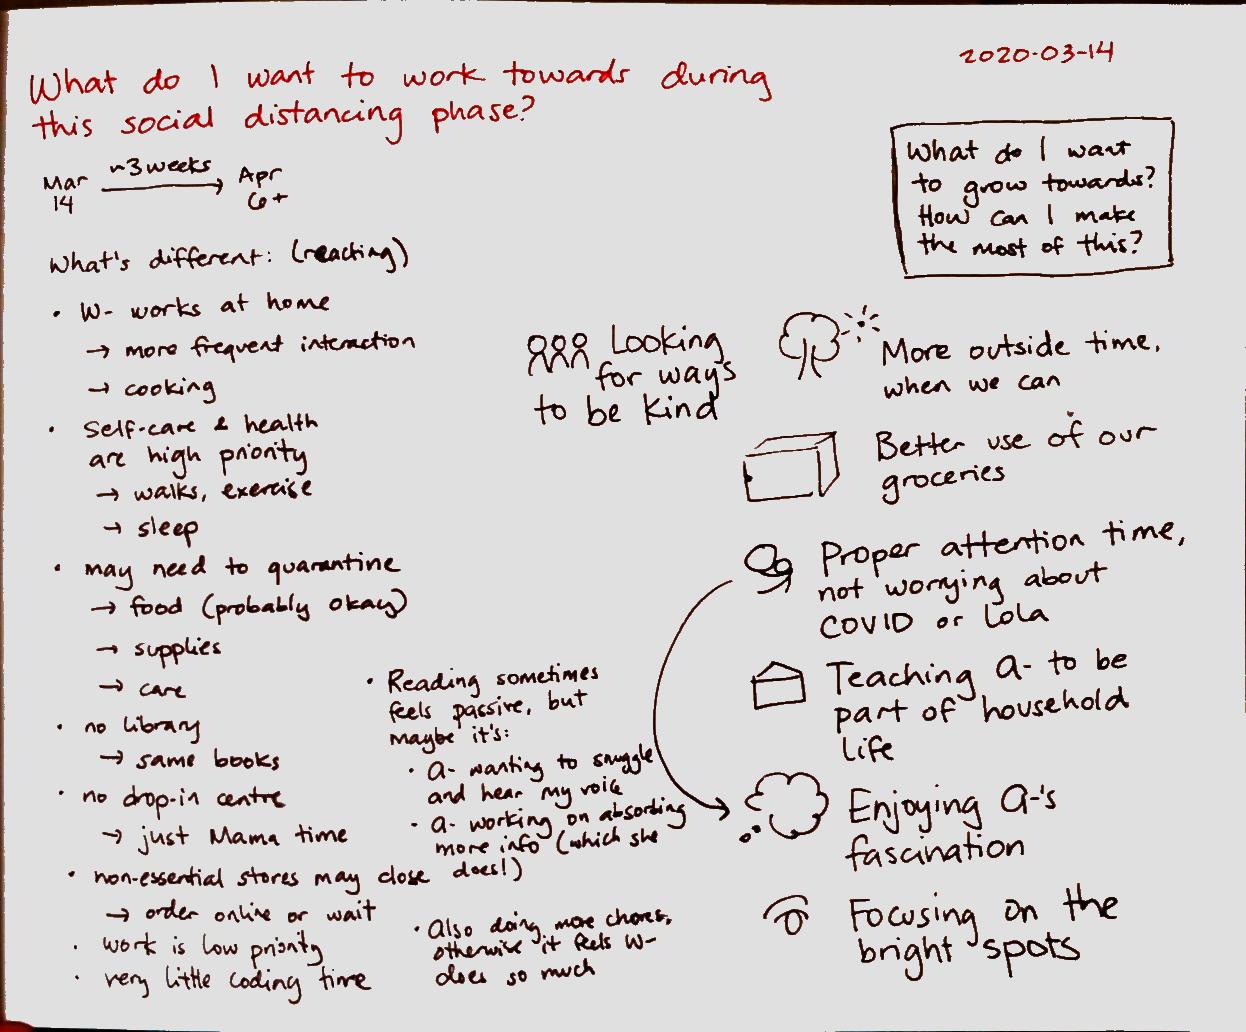 2020-03-14
What do I want to work towards during
this social distancing phase?
Mar 14
~3 weeks
Apr 6+
What do I want
to grow towards?
How can I make
the most of this?
What's different: (reacting)
• W- works at home
→ more frequent interaction
→ cooking
• Self-care & health
are high priority
→ walks, exercise
→ sleep
• may need to quarantine
→ food (probably okay)
→ supplies
→ care
• no library
→ same books
• no drop-in centre
→ just Mama time
• non-essential stores may close
→ order online or wait
• work is low priority
• very little coding time
• Reading sometimes
feels passive, but
maybe it's:
• A- wanting to snuggle
and hear my voice
• A- working on absorbing
more info (which she
does!)
• Also doing more chores,
otherwise it feels W-
does so much
Looking
for ways
to be kind
More outside time,
when we can
Better use of our
groceries
Proper attention time,
not worrying about
COVID or Lola
Teaching A- to be
part of household
life
Enjoying A-'s
fascination
Focusing on the
bright spots